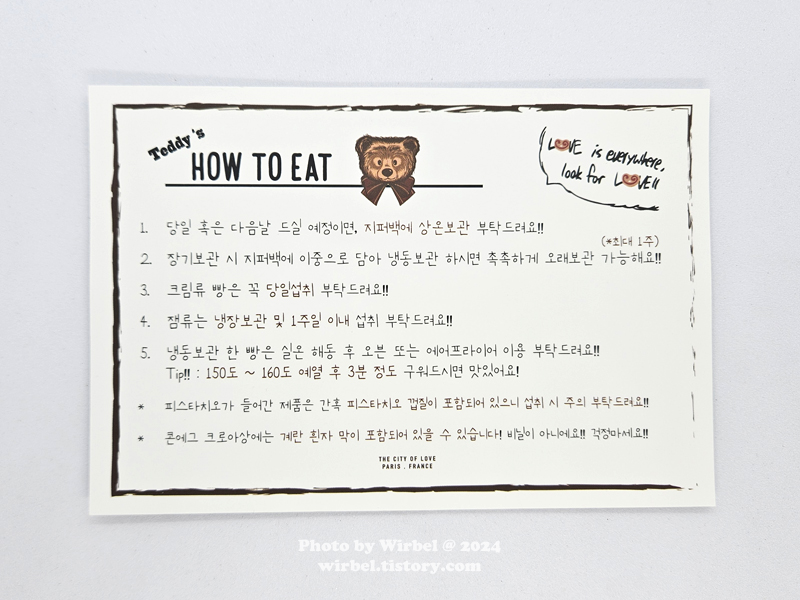 Teddy's
HOW TO EAT
LOVE is everywhere,
look for LOVE!!
1. 당일 혹은 다음날 드실 예정이면, 지퍼백에 상온보관 부탁드려요!!
(*최대 1주)
2. 장기보관 시 지퍼백에 이중으로 담아 냉동보관 하시면 촉촉하게 오래보관 가능해요!!
3. 크림류 빵은 꼭 당일섭취 부탁드려요!!
4. 잼류는 냉장보관 및 1주일 이내 섭취 부탁드려요!!
5. 냉동보관 한 빵은 실온 해동 후 오븐 또는 에어프라이어 이용 부탁드려요!!
Tip!! : 150도 ~ 160도 예열 후 3분 정도 구워드시면 맛있어요!
* 피스타치오가 들어간 제품은 간혹 피스타치오 껍질이 포함되어 있으니 섭취 시 주의 부탁드려요!!
* 콘에그 크로아상에는 계란 흰자 막이 포함되어 있을 수 있습니다! 비닐이 아니에요!! 걱정마세요!!
THE CITY OF LOVE
PARIS . FRANCE
Photo by Wirbel @ 2024
wirbel.tistory.com